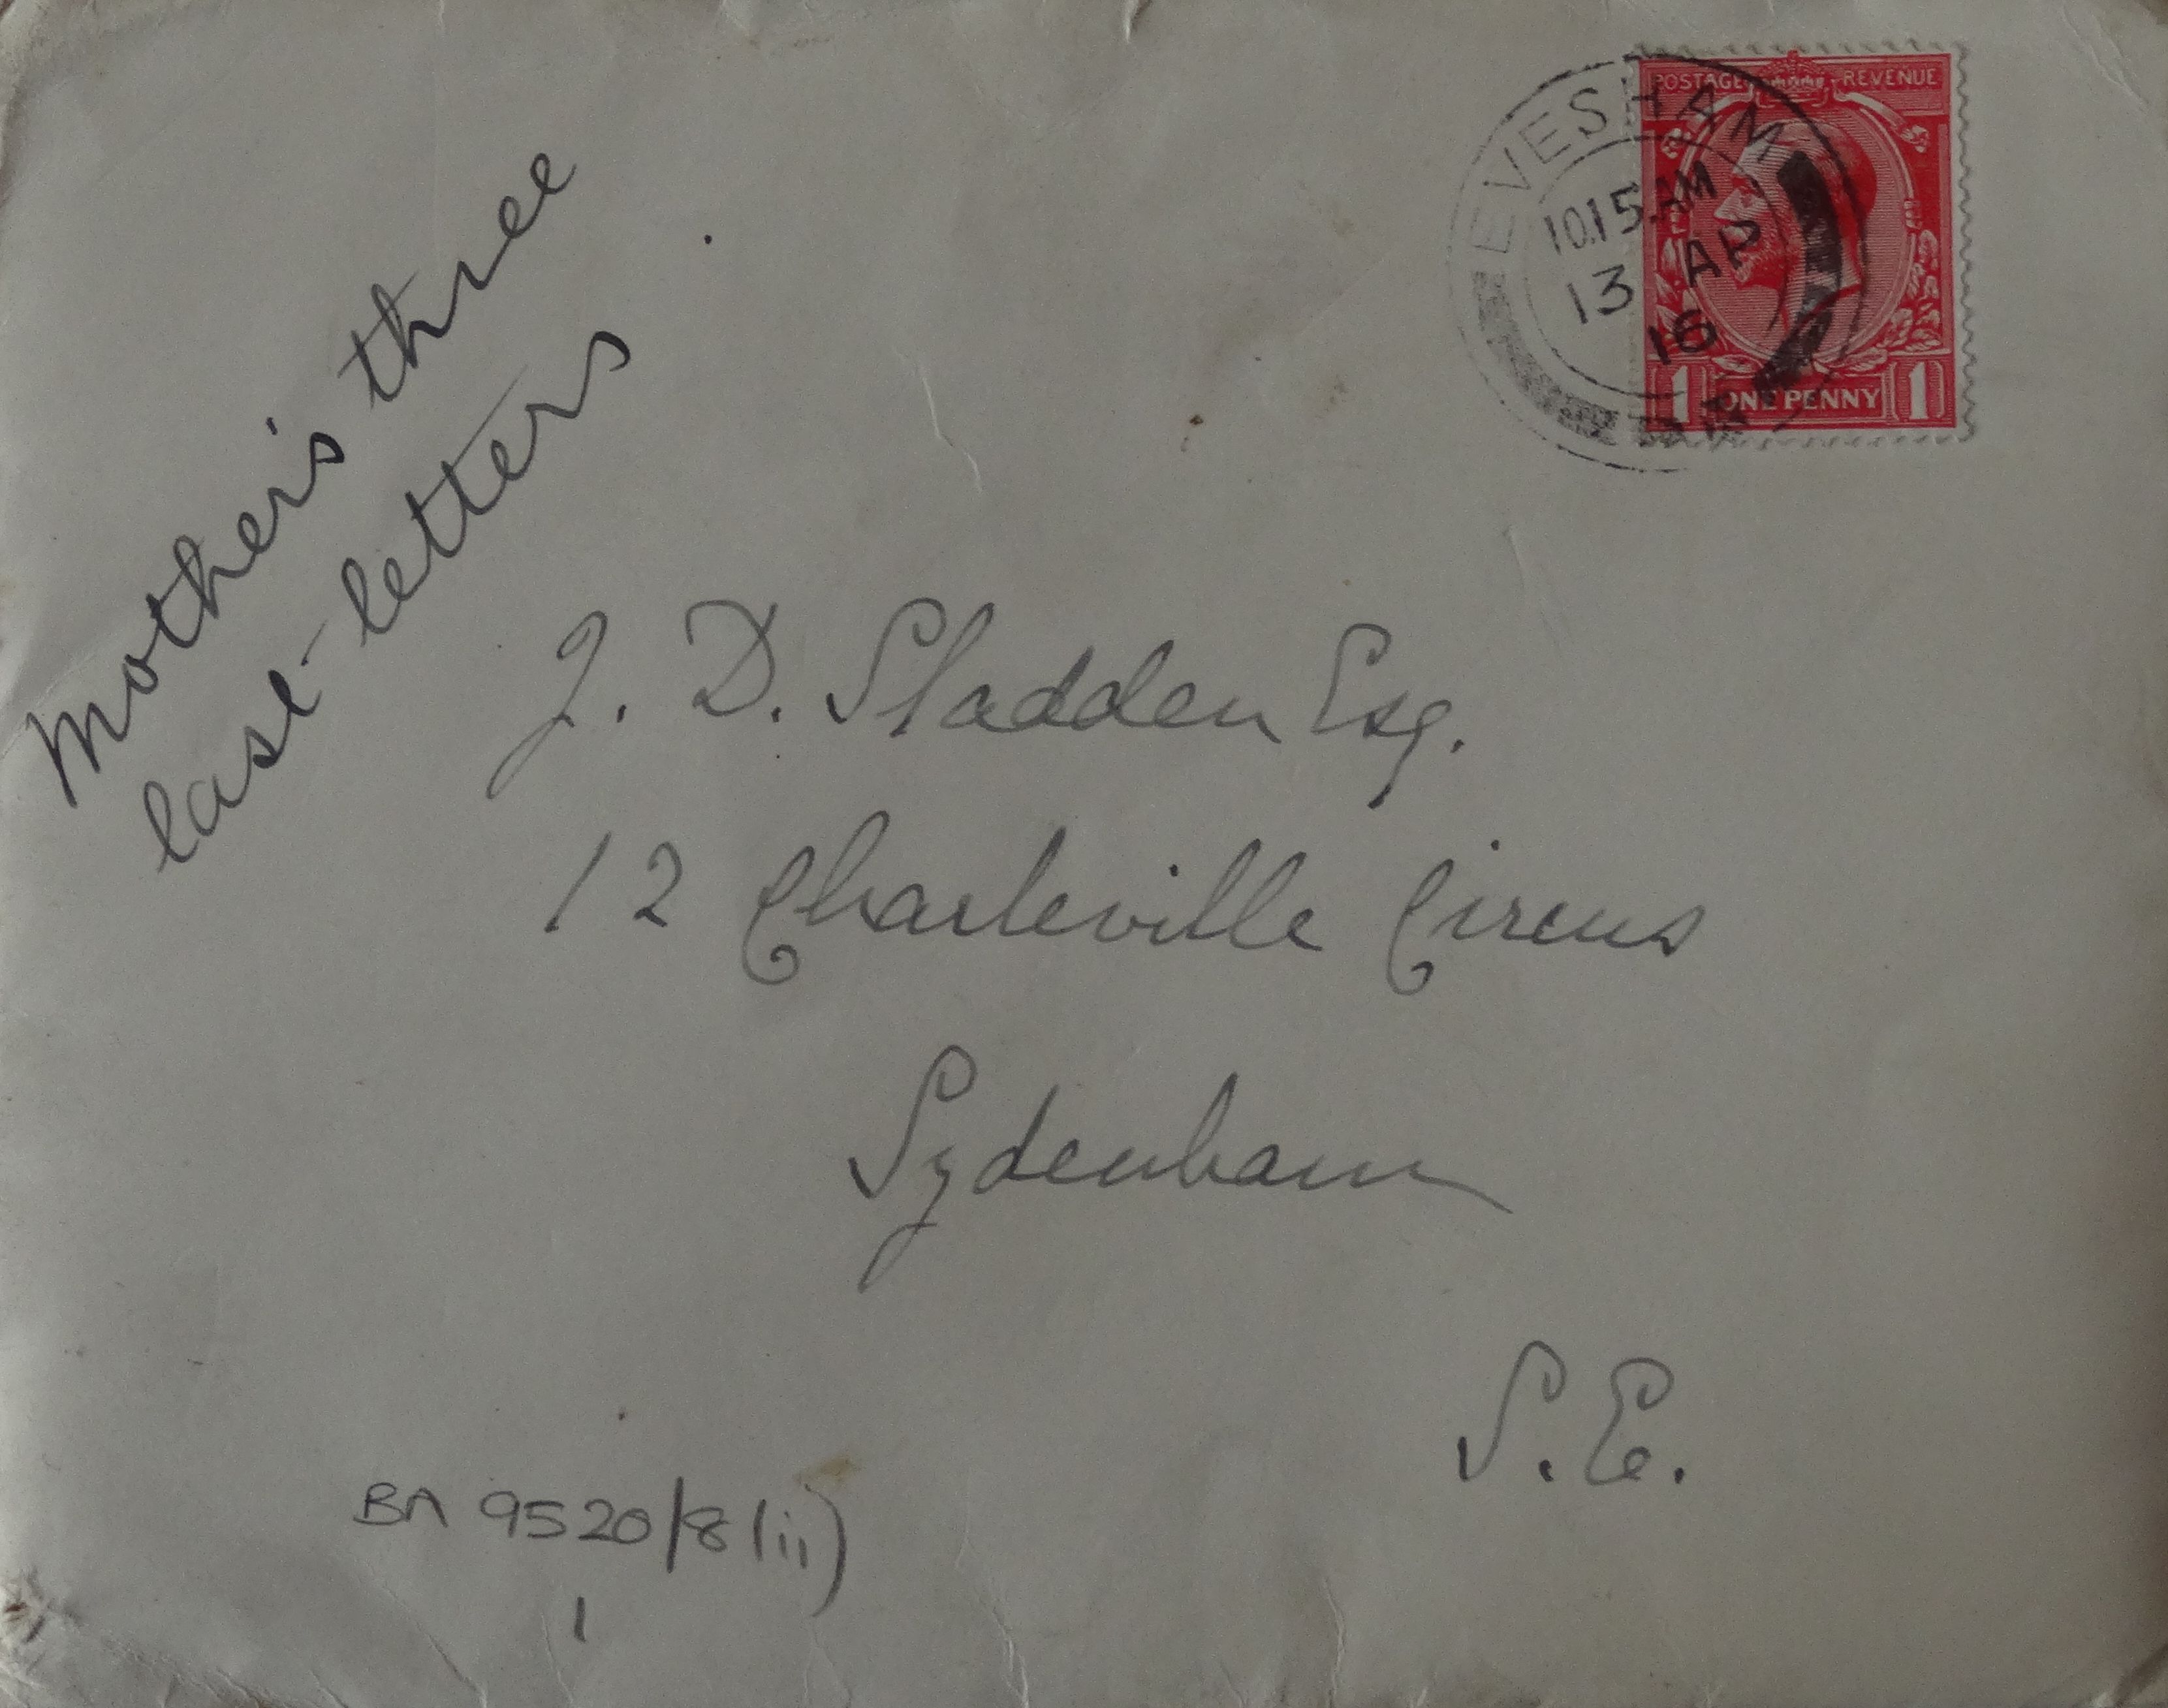 Mother's three
last letters
POSTAGE REVENUE
EVESHAM
10.15.AM
13 AP
16
1 ONE PENNY 1
J. D. Sladden Esq.
12 Charleville Circus
Sydenham
S.E.
BA 9520/8(ii)
1